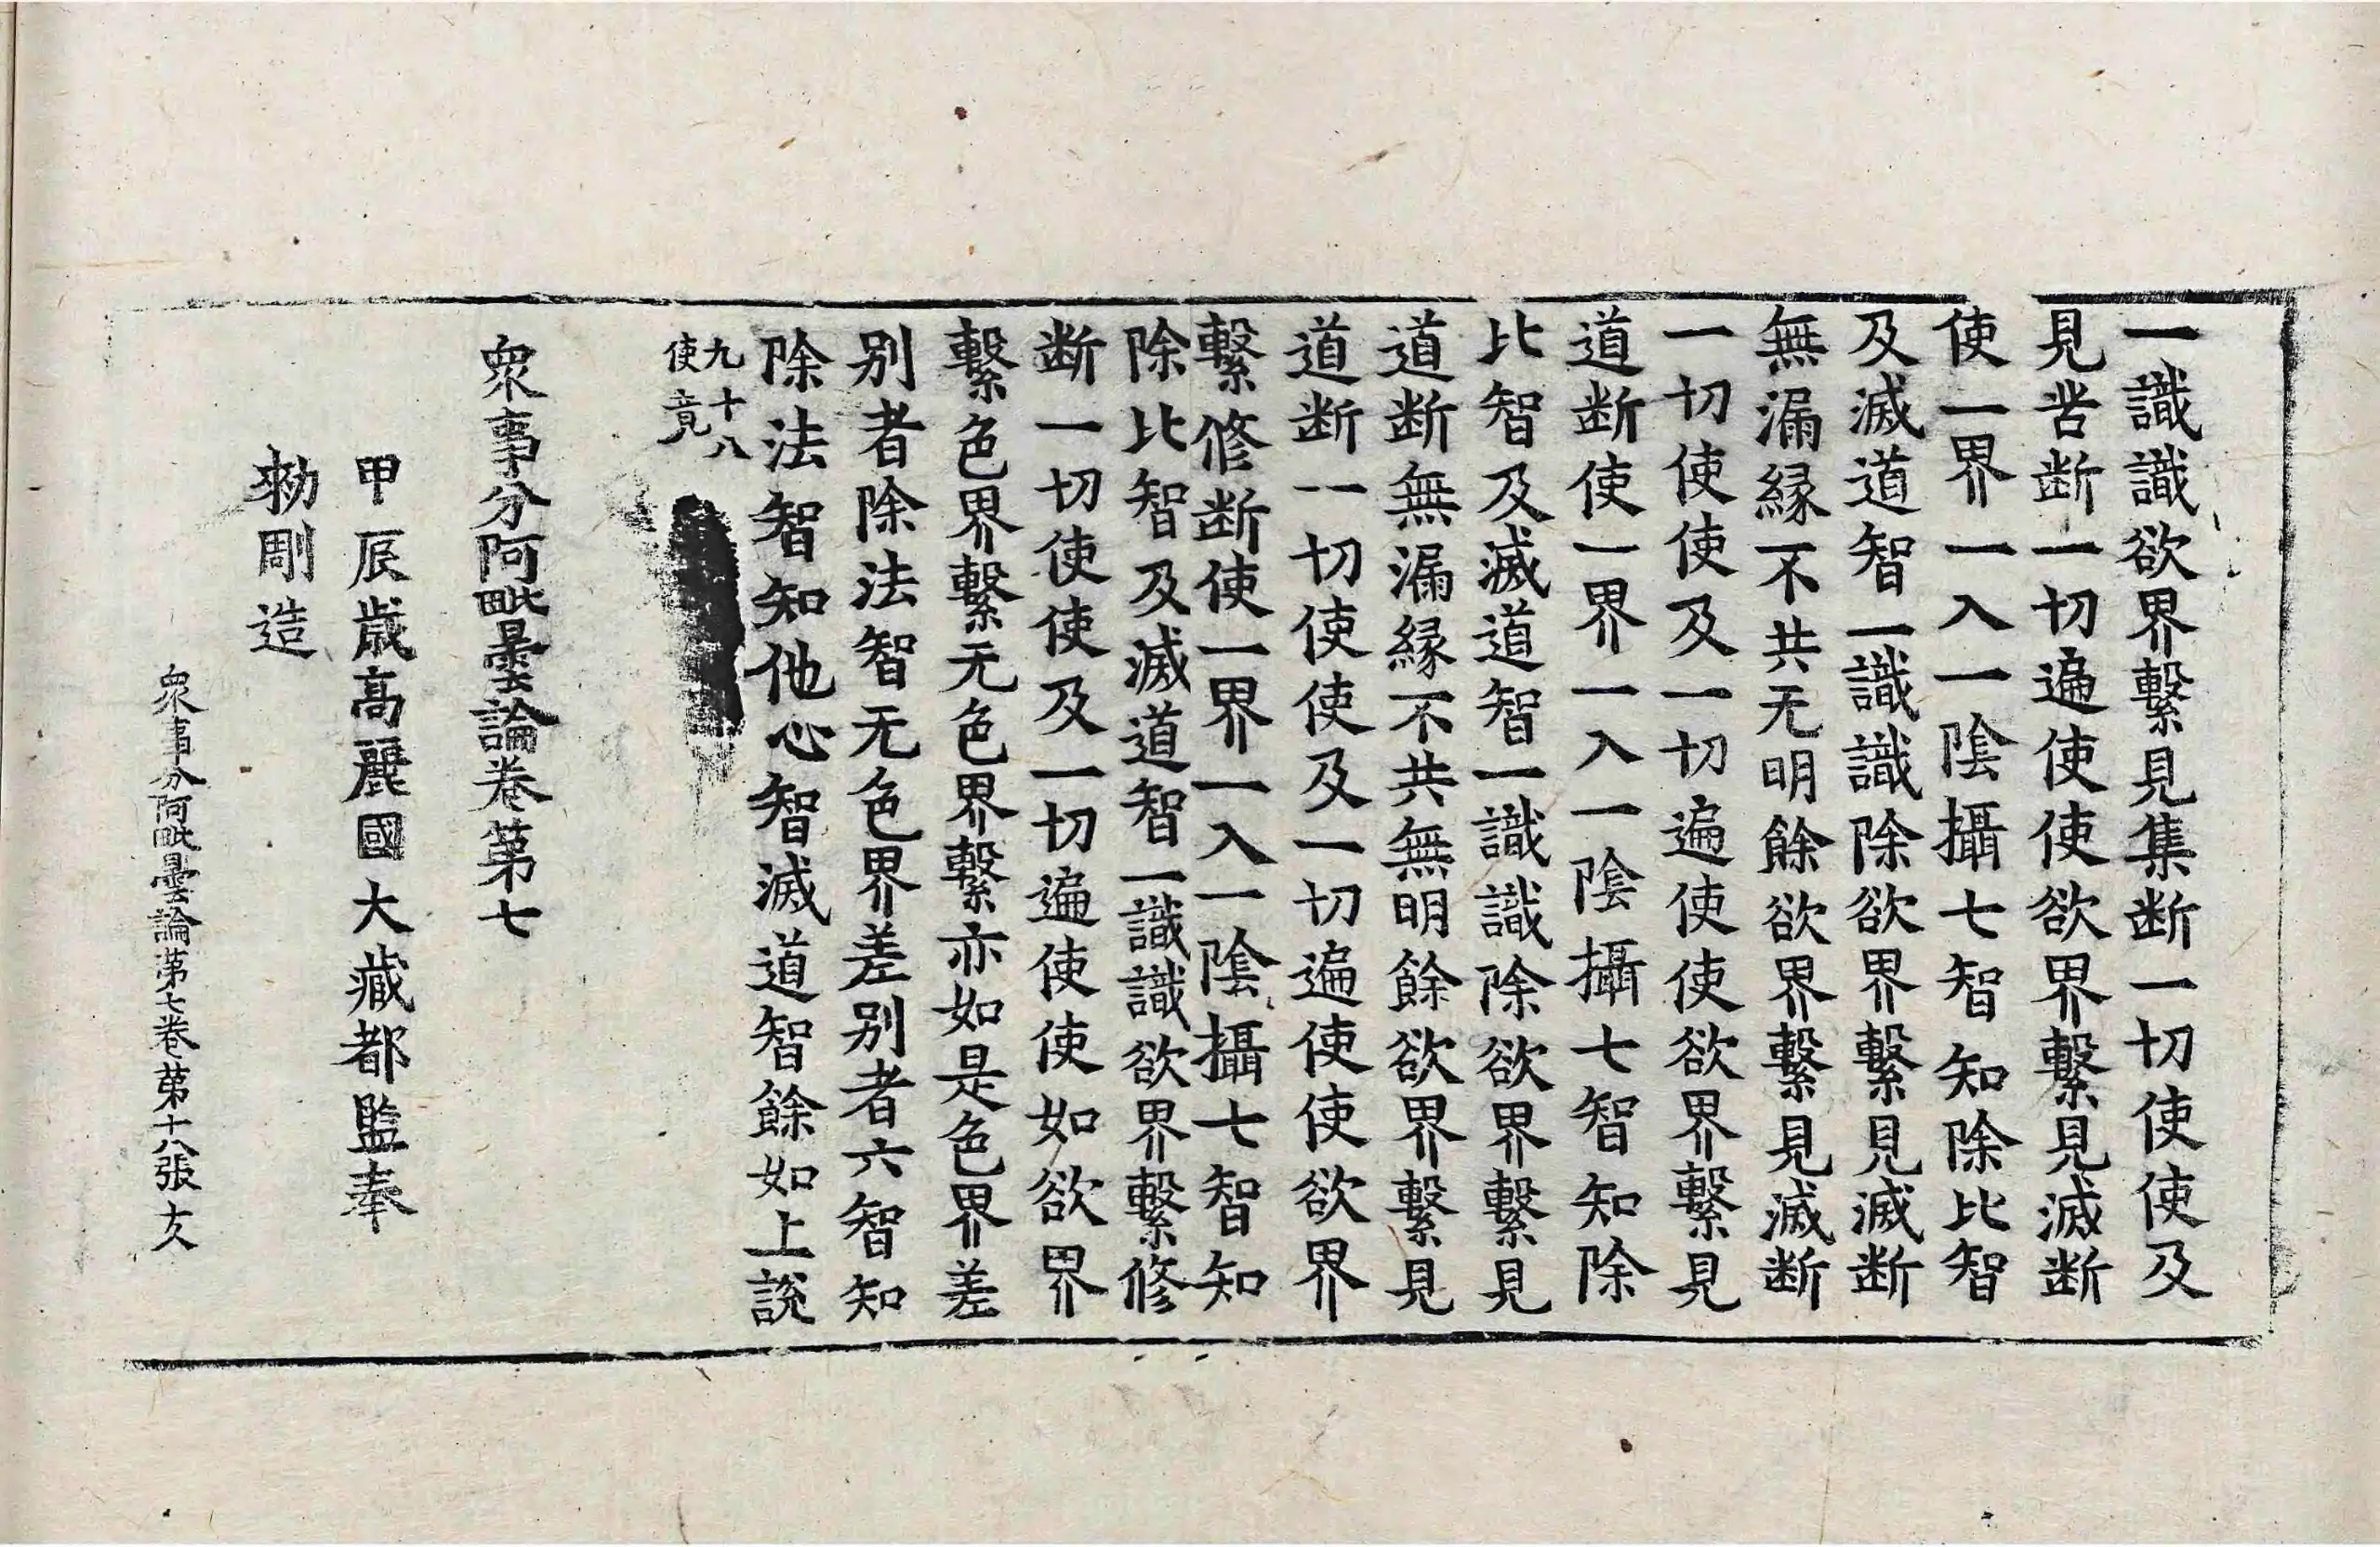 一識識欲界繫見集断一切使使及
見苦断一切遍使使欲界繫見滅断
使一界一入一陰攝七智知除比智
及滅道智一識識除欲界繫見滅断
無漏縁不共无明餘欲界繫見滅断
一切使使及一切遍使使欲界繫見
道断使一界一入一陰攝七智知除
比智及滅道智一識識除欲界繫見
道断無漏縁不共無明餘欲界繫見
道断一切使使及一切遍使使欲界
繫修断使一界一入一陰攝七智知
除比智及滅道智一識識欲界繫修
断一切使使及一切遍使使如欲界
繫色界繫无色界繫亦如是色界差
别者除法智无色界差别者六智知
除法智知他心智滅道智餘如上說
九十八
使竟
衆事分阿毗曇論卷第七
甲辰歲高麗國大藏都監奉
勑雕造
衆事分阿毗曇論第七卷第十八張